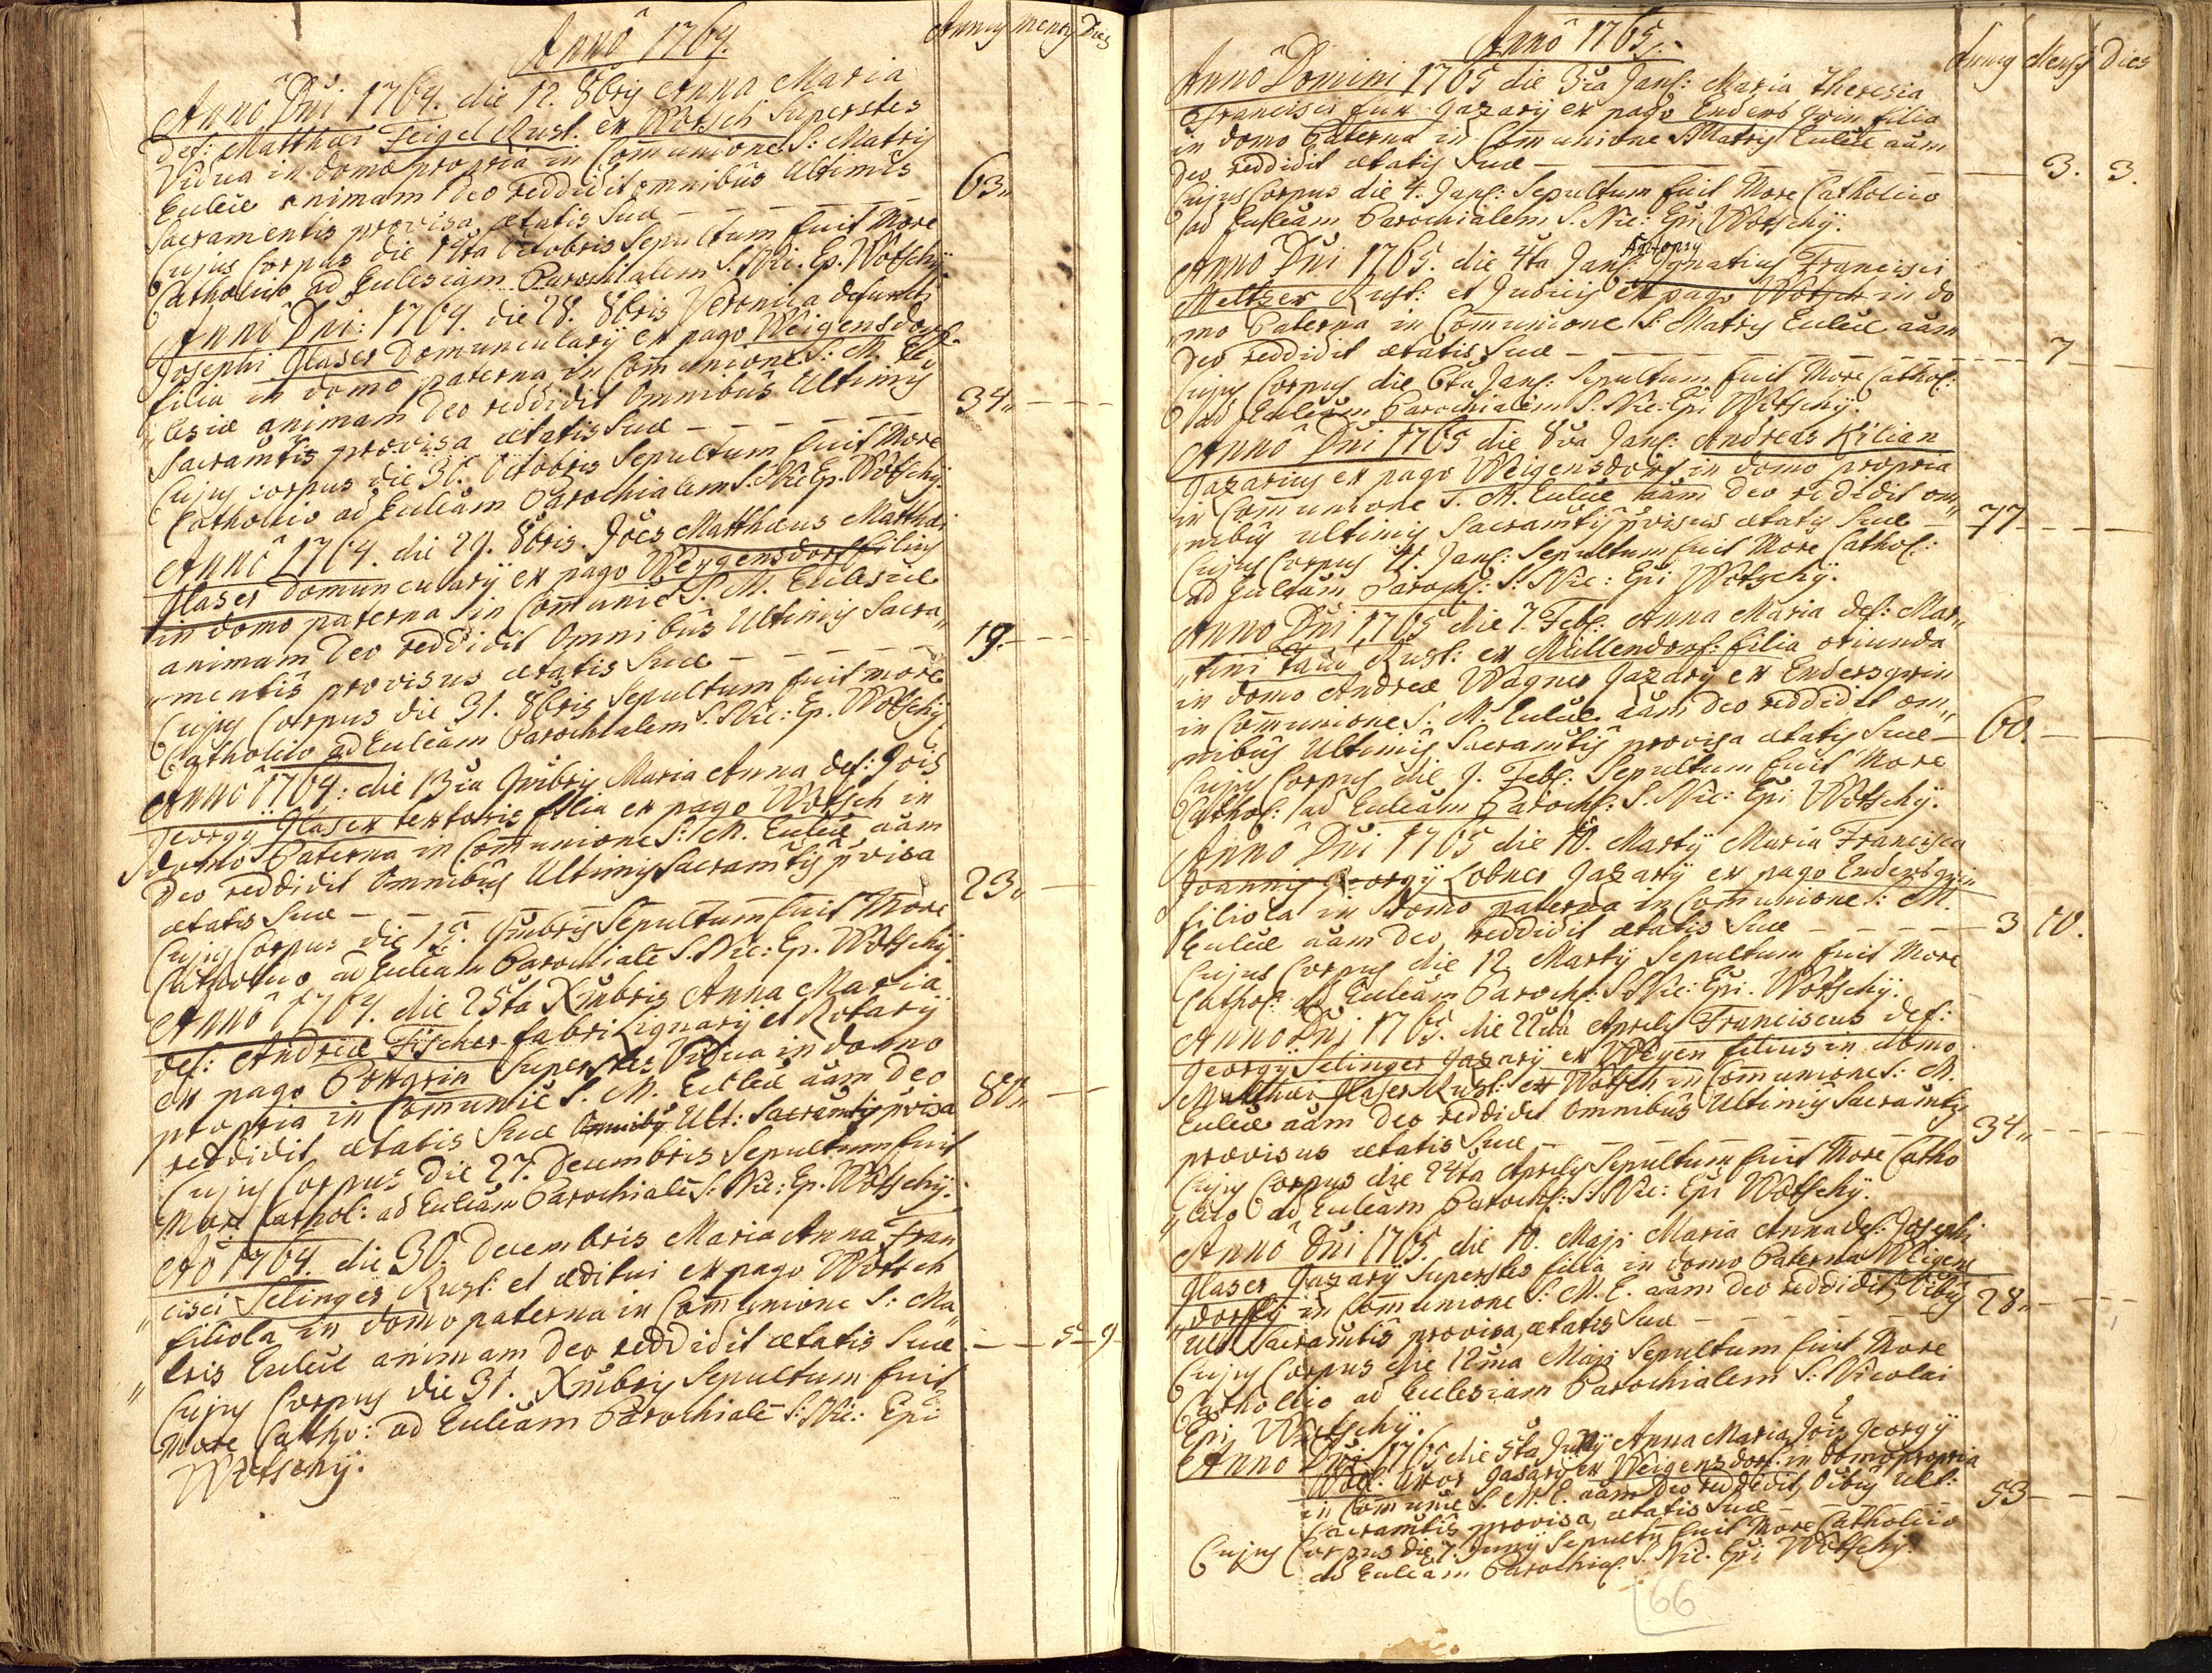 Annô 1764.
Annus Mensis Dies
Annô Dñi 1764. die 12. 8bris Anna Maria
def: Matthæi Feigel Rust. ex Wotsch Superstes
Vidua in domo propria in Communione S: Matris
Eccliæ animam Deo reddidit omnibus Ultimis
Sacramentis provisa ætatis Suæ — 63„
Cujus Corpus die 14ta Octobris Sepultum fuit More
Catholico ad Ecclesiam Parochialem S. Nic: Ep. Wotschÿ.
Annô Dñi: 1764. die 28. 8bris Veronica defuncti
Josephi Glaser Domuncularÿ ex pago Weigensdorf
filia in domo paterna in Communione S: M. Ec
„clesiæ animam Deo reddidit Omnibus Ultimis
Sacramtis provisa ætatis Suæ — 34„
Cujus corpus die 30. Octobris Sepultum fuit More
Catholico ad Eccleam Parochialem S. Nic: Ep. Wotschÿ.
Annô 1764. die 29. 8bris. Joes Matthæus Matthæi
Glaser Domuncularÿ ex pago Weygensdorf filius
in domo paterna in Communiõe S. M. Ecclesiæ
animam Deo reddidit Omnibus Ultimis Sacra„
„mentis provisus ætatis Suæ — 19.
Cujus Corpus die 31. 8bris Sepultum fuit more
Catholico ad Eccleam Parochialem S. Nic: Ep. Wotschÿ
Annô 1764: die 13tia 9mbris Maria Anna def: Jois
Georgÿ Glaser textoris filia ex pago Wotsch in
domo Paterna in Communione S: M. Eccliæ aãm
Deo reddidit Omnibus Ultimis Sacramtis pvisa
ætatis Suæ — 23„
Cujus Corpus die 15. 9mbris Sepultum fuit More
Catholico ad Eccleam Parochiale S. Nic: Ep. Wotschÿ.
Annô 1764. die 25ta Xmbris Anna Maria
def: Andreæ Fischer fabri Lignarÿ et Rotarÿ
ex pago Porgrin Superstes Vidua in domo
propria in Communiẽ S. M. Eccliæ aãm Deo
reddidit, ætatis Suæ Omnibus Ult: Sacramtis pvisa 80„
Cujus Corpus die 27. Decembris Sepultum fuit
More Cathol: ad Eccleam Parochiale S: Nic: Ep. Wotschÿ.
Aõ 1764. die 30. Decembris Maria Anna Fran
„cisci Selinger Rust: et æditui ex pago Wotsch
filiola in domo paterna in Communione S: Ma„
„tris Eccliæ animam Deo reddidit ætatis Suæ — 5 — 9
Cujus Corpus die 31. Xmbris Sepultum fuit
More Catho: ad Eccleam Parochiale S: Nic: Epi
Wotschÿ.
Annô 1765.
Annus Mensis Dies
Annô Domini 1765 die 3tia Janr: Maria Theresia
Francisci Gazarÿ ex pago Enders grin filia
in domo Paterna in Communione S Matris Eccliæ aãm
Deo reddidit ætatis Suæ — 3. 3.
Cujus Corpus die 4. Janr: Sepultum fuit More Catholico
ad Eccleam Parochialem S. Nic: Epi Wotschÿ.
Antony
Annô Dñi 1765. die 4ta Janr: Ignatius Francisci
Meltzer Rust: et Judicis ex pago Wotsch in do
mo Paterna in Communione S: Matris Eccliæ aãm
Deo reddidit ætatis Suæ — 7
Cujus Corpus die 6ta Janr: Sepultum fuit More Cathol:
ad Eccleam Parochialem S. Nic: Epi Wotschÿ.
Annô Dñi 1765 die 8va Janr: Andreas Kilian
Gazarius ex pago Weigensdorf in domo propria
in Communione S. M. Eccliæ aãm Deo reddidit om„
„nibus ultimis Sacramtis pvisus ætatis Suæ — 77
Cujus Corpus 11. Janr: Sepultum fuit More Cathol:
ad Eccleam Paroch: S: Nic: Epi Wotschÿ.
Anno Dñi 1765 die 7. Febr. Anna Maria def: Mar„
„tini Rust: ex Müllendorf: filia oriunda
in domo Andreæ Wagner Gazarÿ ex Endersgrin
in Communione S. M. Eccliæ aãm Deo reddidit om„
nibus Ultimis Sacramtis provisa ætatis Suæ — 60.
Cujus Corpus die 9. Febr: Sepultum fuit More
Cathol: ad Eccleam Paroch: S. Nic: Epi Wotschÿ.
Annô Dñi 1765 die 10. Martÿ Maria Francisca
Joannis Georgÿ Lobner Gazarÿ ex pago Endersgrin
filiola in domo paterna in Communione S: M.
Eccliæ aãm Deo reddidit ætatis Suæ — 3 10.
Cujus Corpus die 12 Martÿ Sepultum fuit More
Cathol: ad Eccleam Paroch: S. Nic: Epi. Wotschÿ.
Annô Dñi 1765. die 22da Aprilis Franciscus def:
Georgÿ Selinger Gazarÿ ex Weyen filius in domo
Matthæi Glaser Rust: ex Wotsch in Communione S: M.
Eccliæ aãm Deo reddidit Omnibus Ultimis Sacramtis
provisus ætatis Suæ — 34„
Cujus Corpus die 24ta Aprilis Sepultum fuit More Catho
„lico ad Eccleam Paroch: S: Nic: Epi Wotschÿ.
Annô Dñi 1765. die 10. Maji Maria Anna def: Josephi
Glaser Gazarÿ Superstes filia in domo Paterna Weigens
„dorffÿ in Communione S: M. E. aãm Deo reddidit, Oibus
Ult: Sacramtis provisa, ætatis Suæ — 28„
Cujus Corpus die 12ma Maji Sepultum fuit More
Catholico ad Ecclesiam Parochialem S: Nicolai
Epi Wotschÿ.
Anno Dñi 1765 die 5ta Junÿ Anna Maria Jois Georgÿ
Uxor Gazarÿ ex Weigensdorf: in domo propria
in Communiẽ S. M. E. aãm Deo reddidit, Oibus Ult:
Sacramtis provisa, ætatis Suæ — 53
Cujus Corpus die 7. Junÿ Sepultũ fuit More Catholico
ad Eccleam Parochial: S. Nic. Epi Wotschÿ.
66